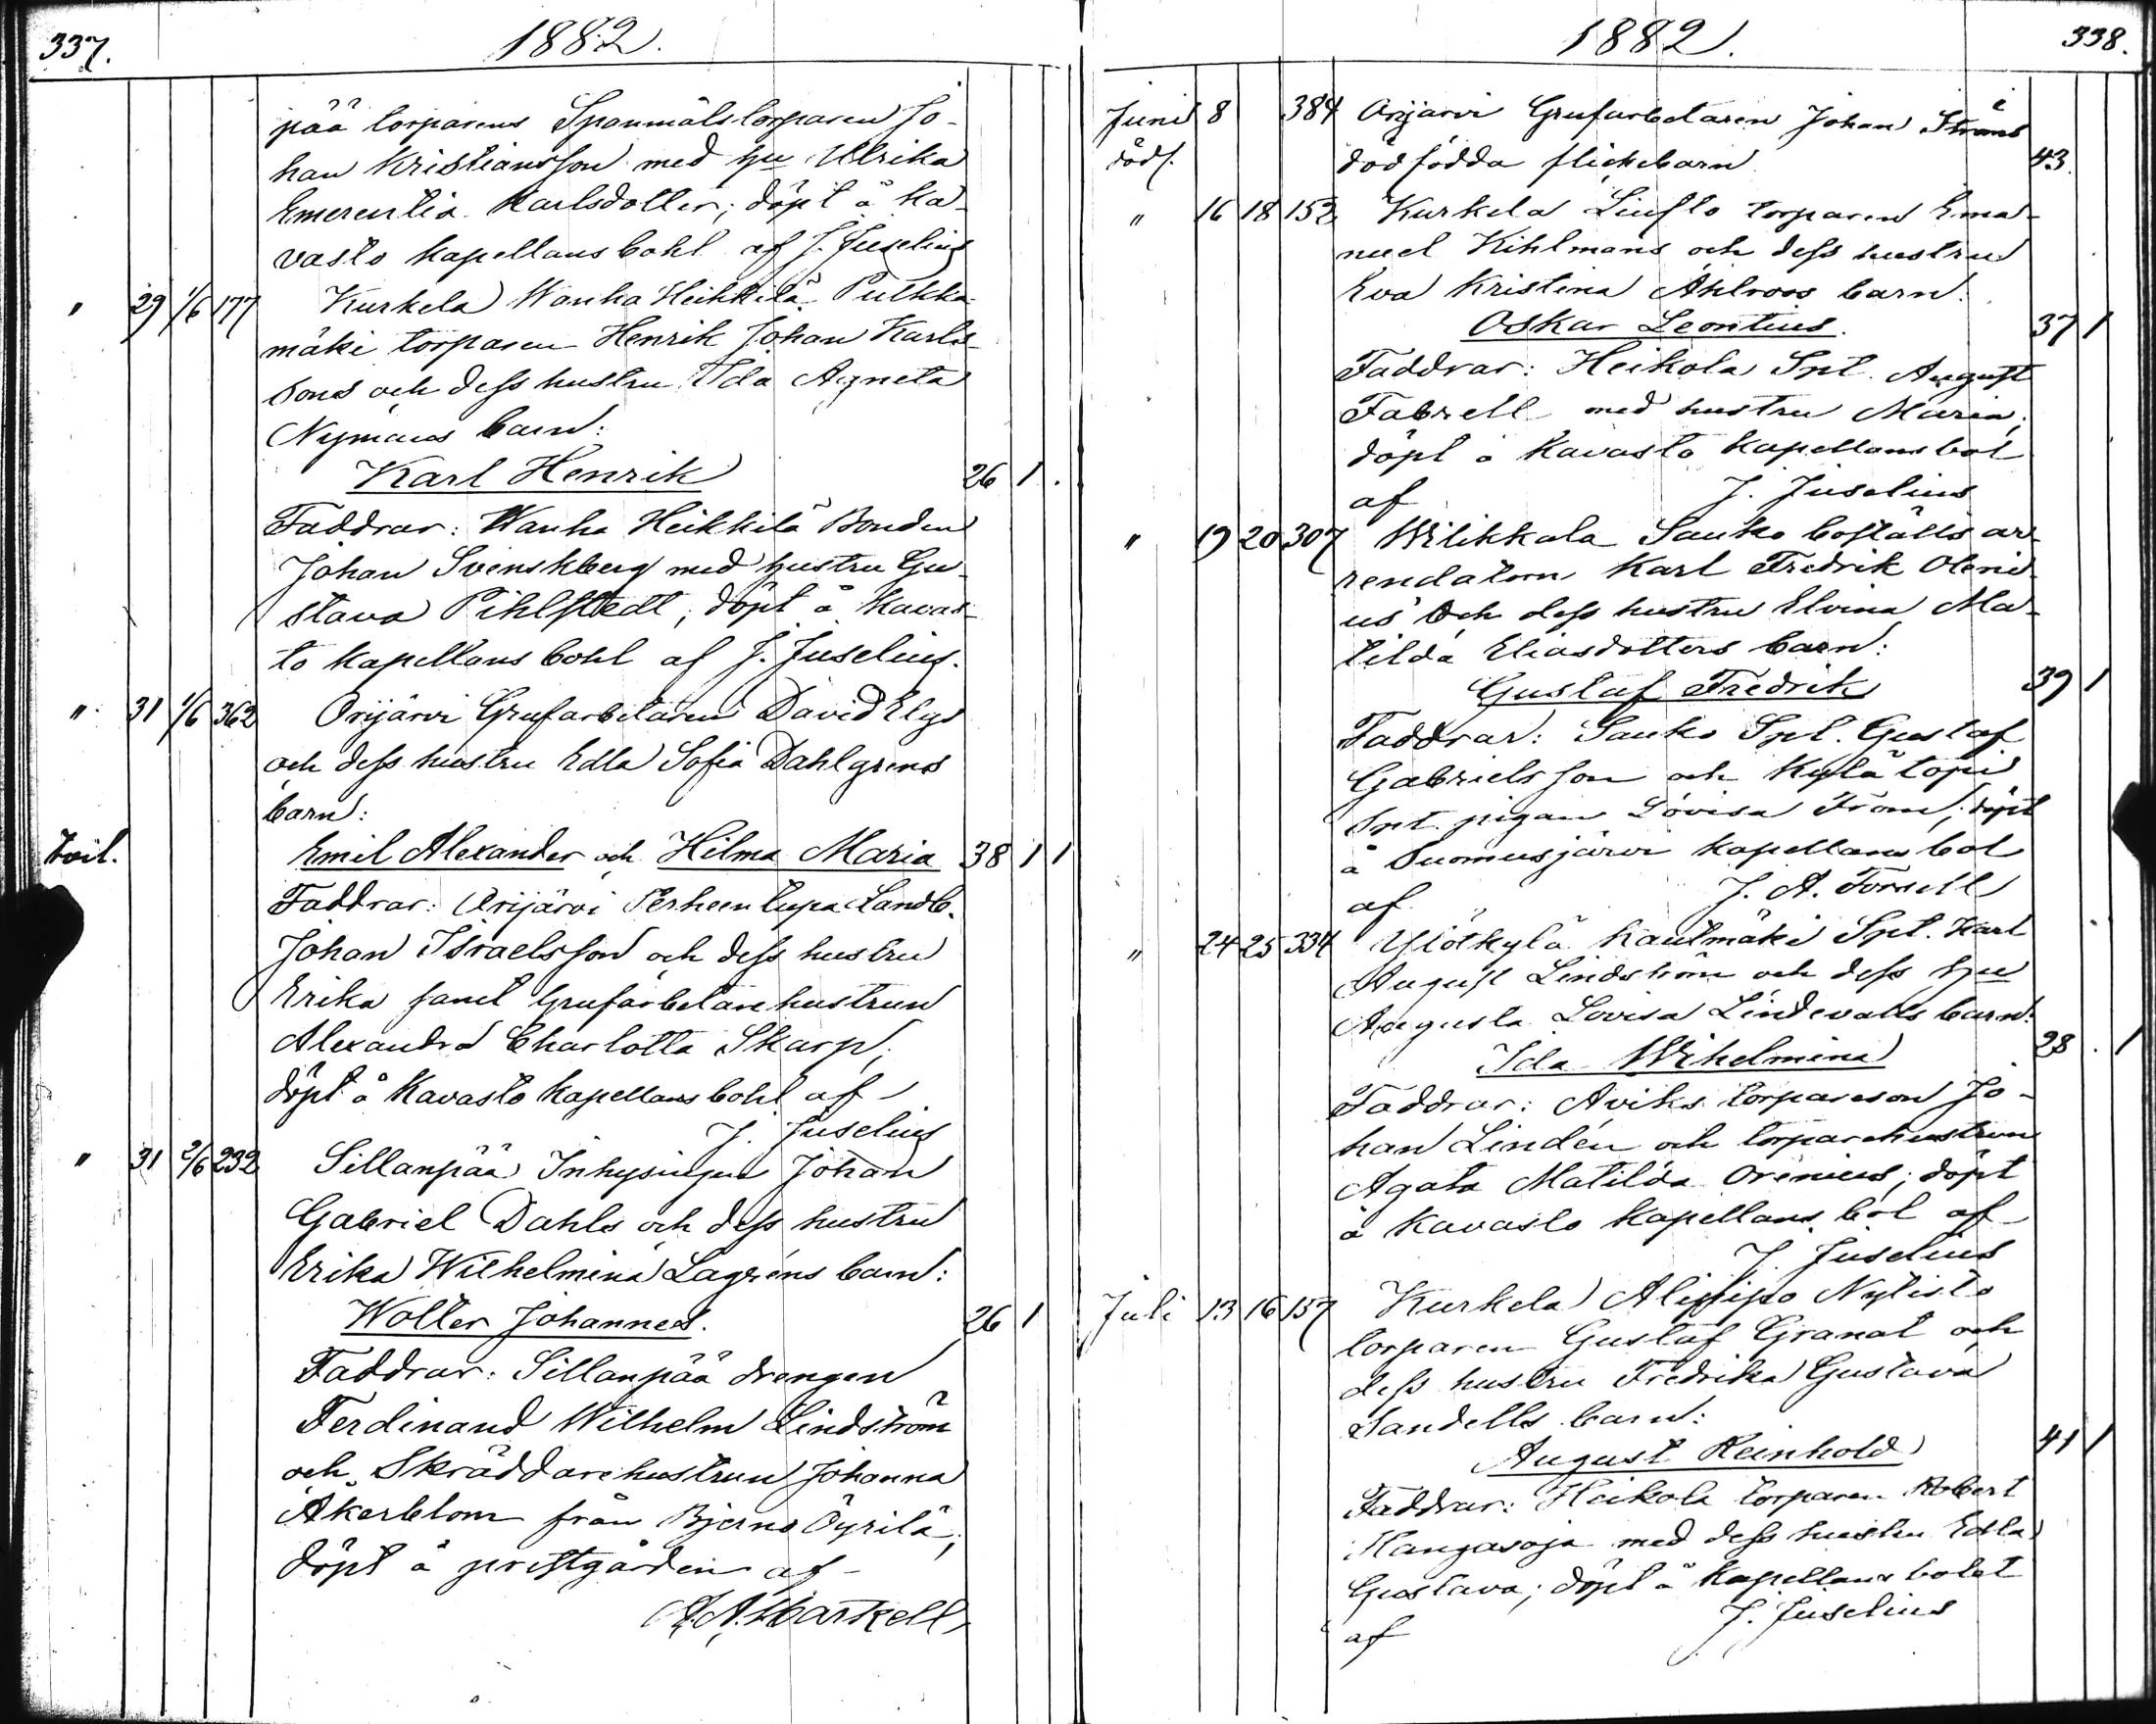 337.
1882.
pää torparens Spanmålstorparen Jo-
han Kristiansson med hu Ulrika
Emerentia Karlsdotter; döpt å Ka-
vasto Kapellansbohl af J. Juselius
" 29 1/6 177 Kurkela Wanha Heikkilä Pulkka-
mäki torparen Henrik Johan Karls-
sons och dess hustru Ida Agneta
Nymans barn:
Karl Henrik 26 1.
Faddrar: Wanha Heikkilä Bonden
Johan Svenskberg med hustru Gu-
stava Pihlstedt; döpt å Kavas-
to Kapellans bohl af J. Juselius.
" 31 1/6 362 Orijärvi Grufarbetaren David Elgs
och dess hustru Edla Sofia Dahlgrens
barn:
Tvil. Emil Alexander och Hilma Maria 38 1 1
Faddrar: Orijärvi Perheentupa Landb.
Johan Israelsson och dess hustru
Erika samt Grufarbetarehustrun
Alexandra Charlotta Skarp;
döpt å Kavasto Kapellansbohl af
J. Juselius
" 31 2/6 232 Sillanpää Inhysingen Johan
Gabriel Dahls och dess hustru
Erika Wilhelmina Lagréns barn:
Wolter Johannes. 26 1
Faddrar: Sillanpää drengen
Ferdinand Wilhelm Lindström
och Skräddarehustrun Johanna
Åkerblom från Bjerno Öyrilä;
döpt å prestgården af
1882.
338.
Juni 8 384 Orijärvi Grufarbetaren Johan Ströms
dödf. dödfödda flickebarn 43
" 16 18 152 Kurkela torparen Ema-
nuel Kihlmans och dess hustru
Eva Kristina Ahlroos barn:
Oskar Leontius. 37 1
Faddrar: Heikola Spt. August
Fabrell med hustru Maria;
döpt å Kavasto Kapellansbol
af J. Juselius
" 19 20 307 Wilikkala Sauko boställs ar-
rendatorn Karl Fredrik Oleni-
us och dess hustru Elvina Ma-
tilda Eliasdotters barn:
Gustaf Fredrik 39 1
Faddrar: Sauko Spt. Gustaf
Gabrielsson och Kylätöpi
Spt. pigan Lovisa From; döpt
å Suomusjärvi kapellansbol
af J. A. Forsell
" 24 25 334 Ylötkylä Kautmäki Spt. Karl
August Lindström och dess hu
Augusta Lovisa Lindevalls barn:
Ida Wihelmina 28. 1
Faddrar: Aviks torpareson Jo-
han Lindén och torparehustrun
Agata Matilda Orenius; döpt
å Kavasto Kapellans bol af
J. Juselius
Juli 13 16 157 Kurkela Alippipo Nylisto
torparen Gustaf Granat och
dess hustru Fredrika Gustava
Sandells barn:
August Reinhold 41 1
Faddrar: Heikola torparen Robert
Kangasoja med dess hustru Edla
Gustava; döpt å Kapellans bolet
af J. Juselius